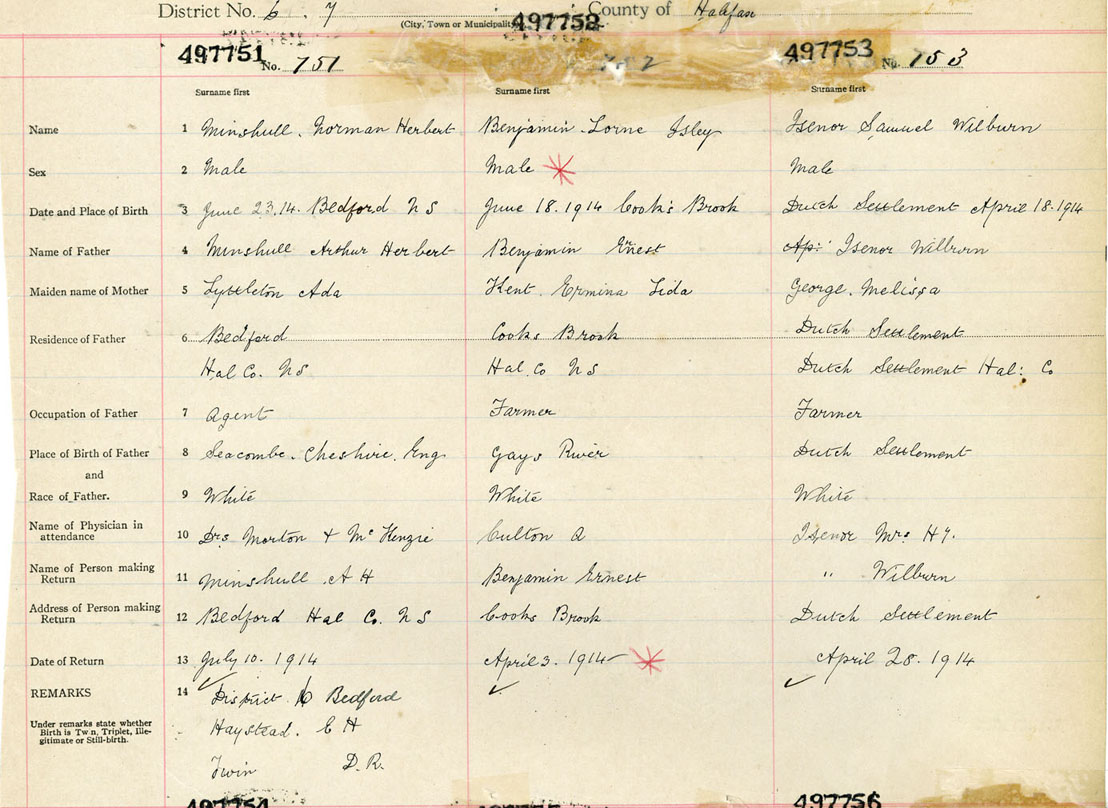 District No. 6. 7 (City, Town or Municipality) County of Halifax
497751 No. 751 497752 752 497753 No. 753
Surname first Surname first Surname first
Name 1 Minshull. Norman Herbert Benjamin Lorne Isley Isenor Samuel Wilburn
Sex 2 Male Male Male
Date and Place of Birth 3 June 23.14. Bedford N S June 18. 1914 Cook's Brook Dutch Settlement April 18. 1914
Name of Father 4 Minshull Arthur Herbert Benjamin Ernest Ap: Isenor Wilburn
Maiden name of Mother 5 Lyttleton Ada Kent. Ermina Lida George. Melissa
Residence of Father 6 Bedford Cooks Brook Dutch Settlement
Hal Co. N S Hal. Co N S Dutch Settlement Hal: Co
Occupation of Father 7 Agent Farmer Farmer
Place of Birth of Father 8 Seacombe. Cheshire. Eng Gays River Dutch Settlement
and
Race of Father. 9 White White White
Name of Physician in
attendance 10 Drs Morton + McKenzie Culton A Isenor Mrs Hy.
Name of Person making
Return 11 Minshull. A H Benjamin Ernest " Wilburn
Address of Person making
Return 12 Bedford Hal Co. N S Cooks Brook Dutch Settlement
Date of Return 13 July 10. 1914 April 3. 1914 April 28. 1914
REMARKS 14 District 6 Bedford
Under remarks state whether
Birth is Twin, Triplet, Ille-
gitimate or Still-birth.
Haystead. C H
Twin D.R.
497754 497756